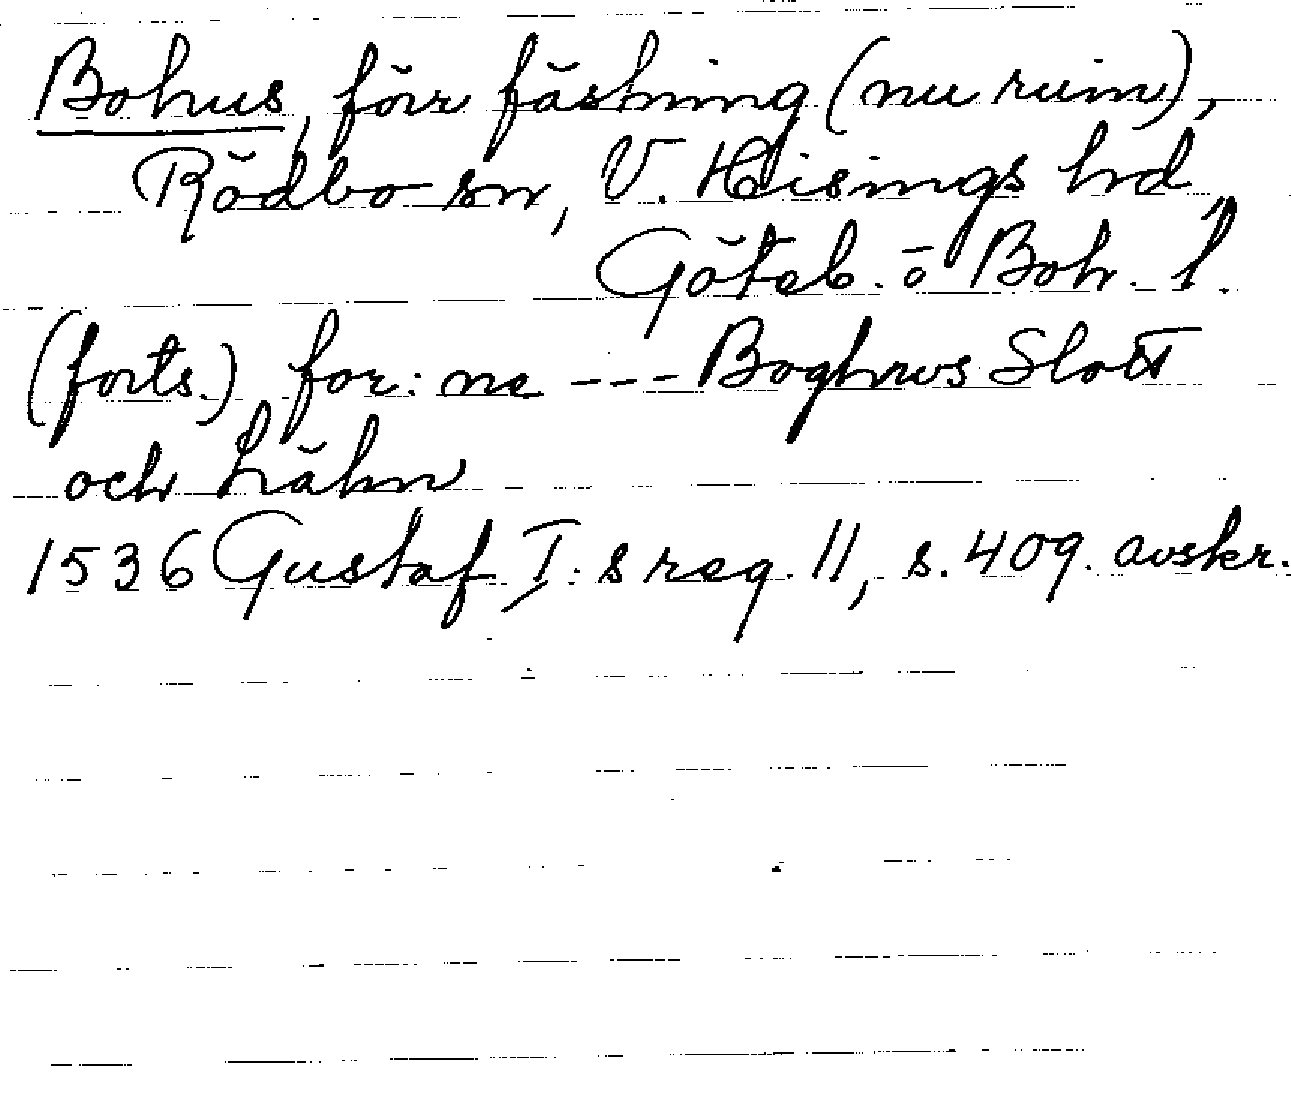 Bohus, förr fästning (nu ruin),
Rödbo sn, V. Hisings hd
Göteb. o Boh. l.
(forts.) for: ne --- Boghws Slott
och Lähn
1536 Gustaf I:s reg. 11, s. 409. avskr.